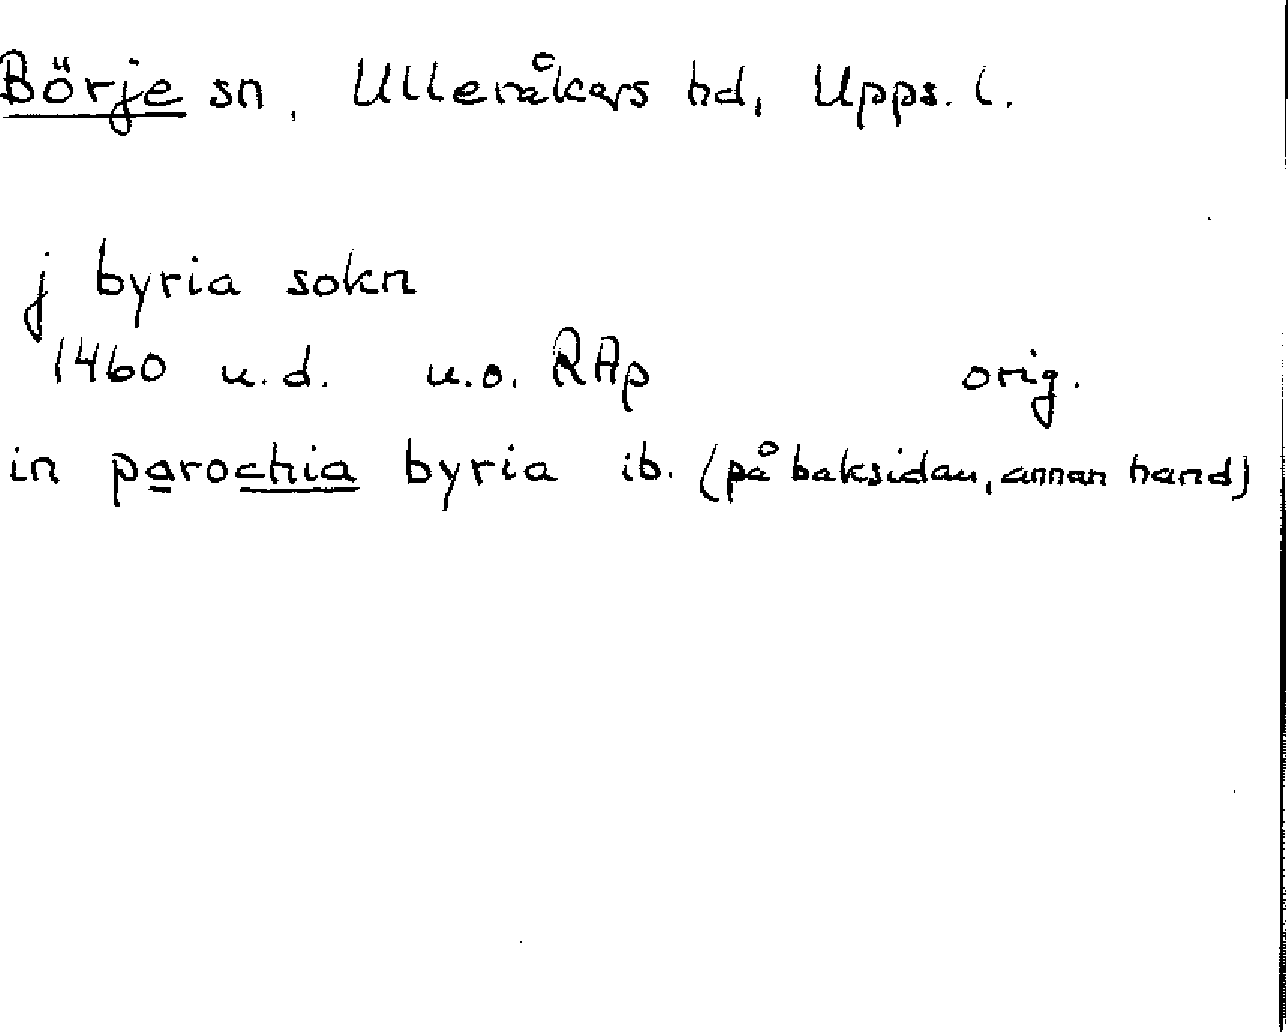 Börje sn, Ulleråkers hd, Upps. l.
j byria sokn
1460 u.d. u.o. RAp orig.
in parochia byria ib. (på baksidan, annan hand)